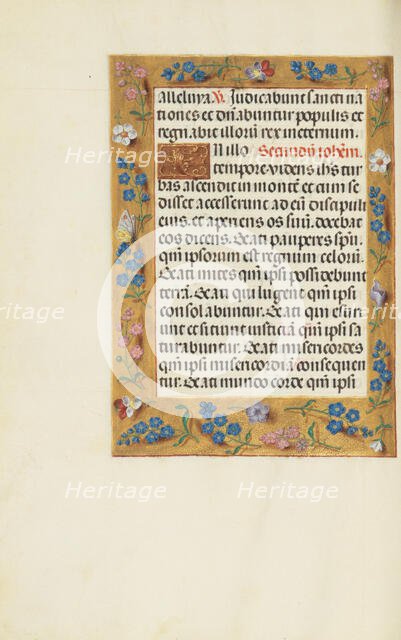 alleluya. V. Judicabunt sancti na
tiones et dn̄abuntur populis et
regnabit illorū rex in eternum.
In illo Secundū Johēm.
tempore videns ihs tur
bas ascendit in montē et cum se
disset accesserunt ad eū discipuli
eius. et aperiens os suū. docebat
eos dicens. Beati pauperes spū.
qm̄ ipsorum est regnum celorū.
Beati mites qm̄ ipsi possidebunt
terrā. Beati qui lugent qm̄ ipsi
consolabuntur. Beati qui esuri
unt et sitiunt iusticiā qm̄ ipsi sa
turabuntur. Beati misericordes
qm̄ ipsi misericordiā consequen
tur. Beati mundo corde qm̄ ipsi
Heritage
Heritage
Heritage
Heritage
Heritage
Heritage
Heritage
Heritage